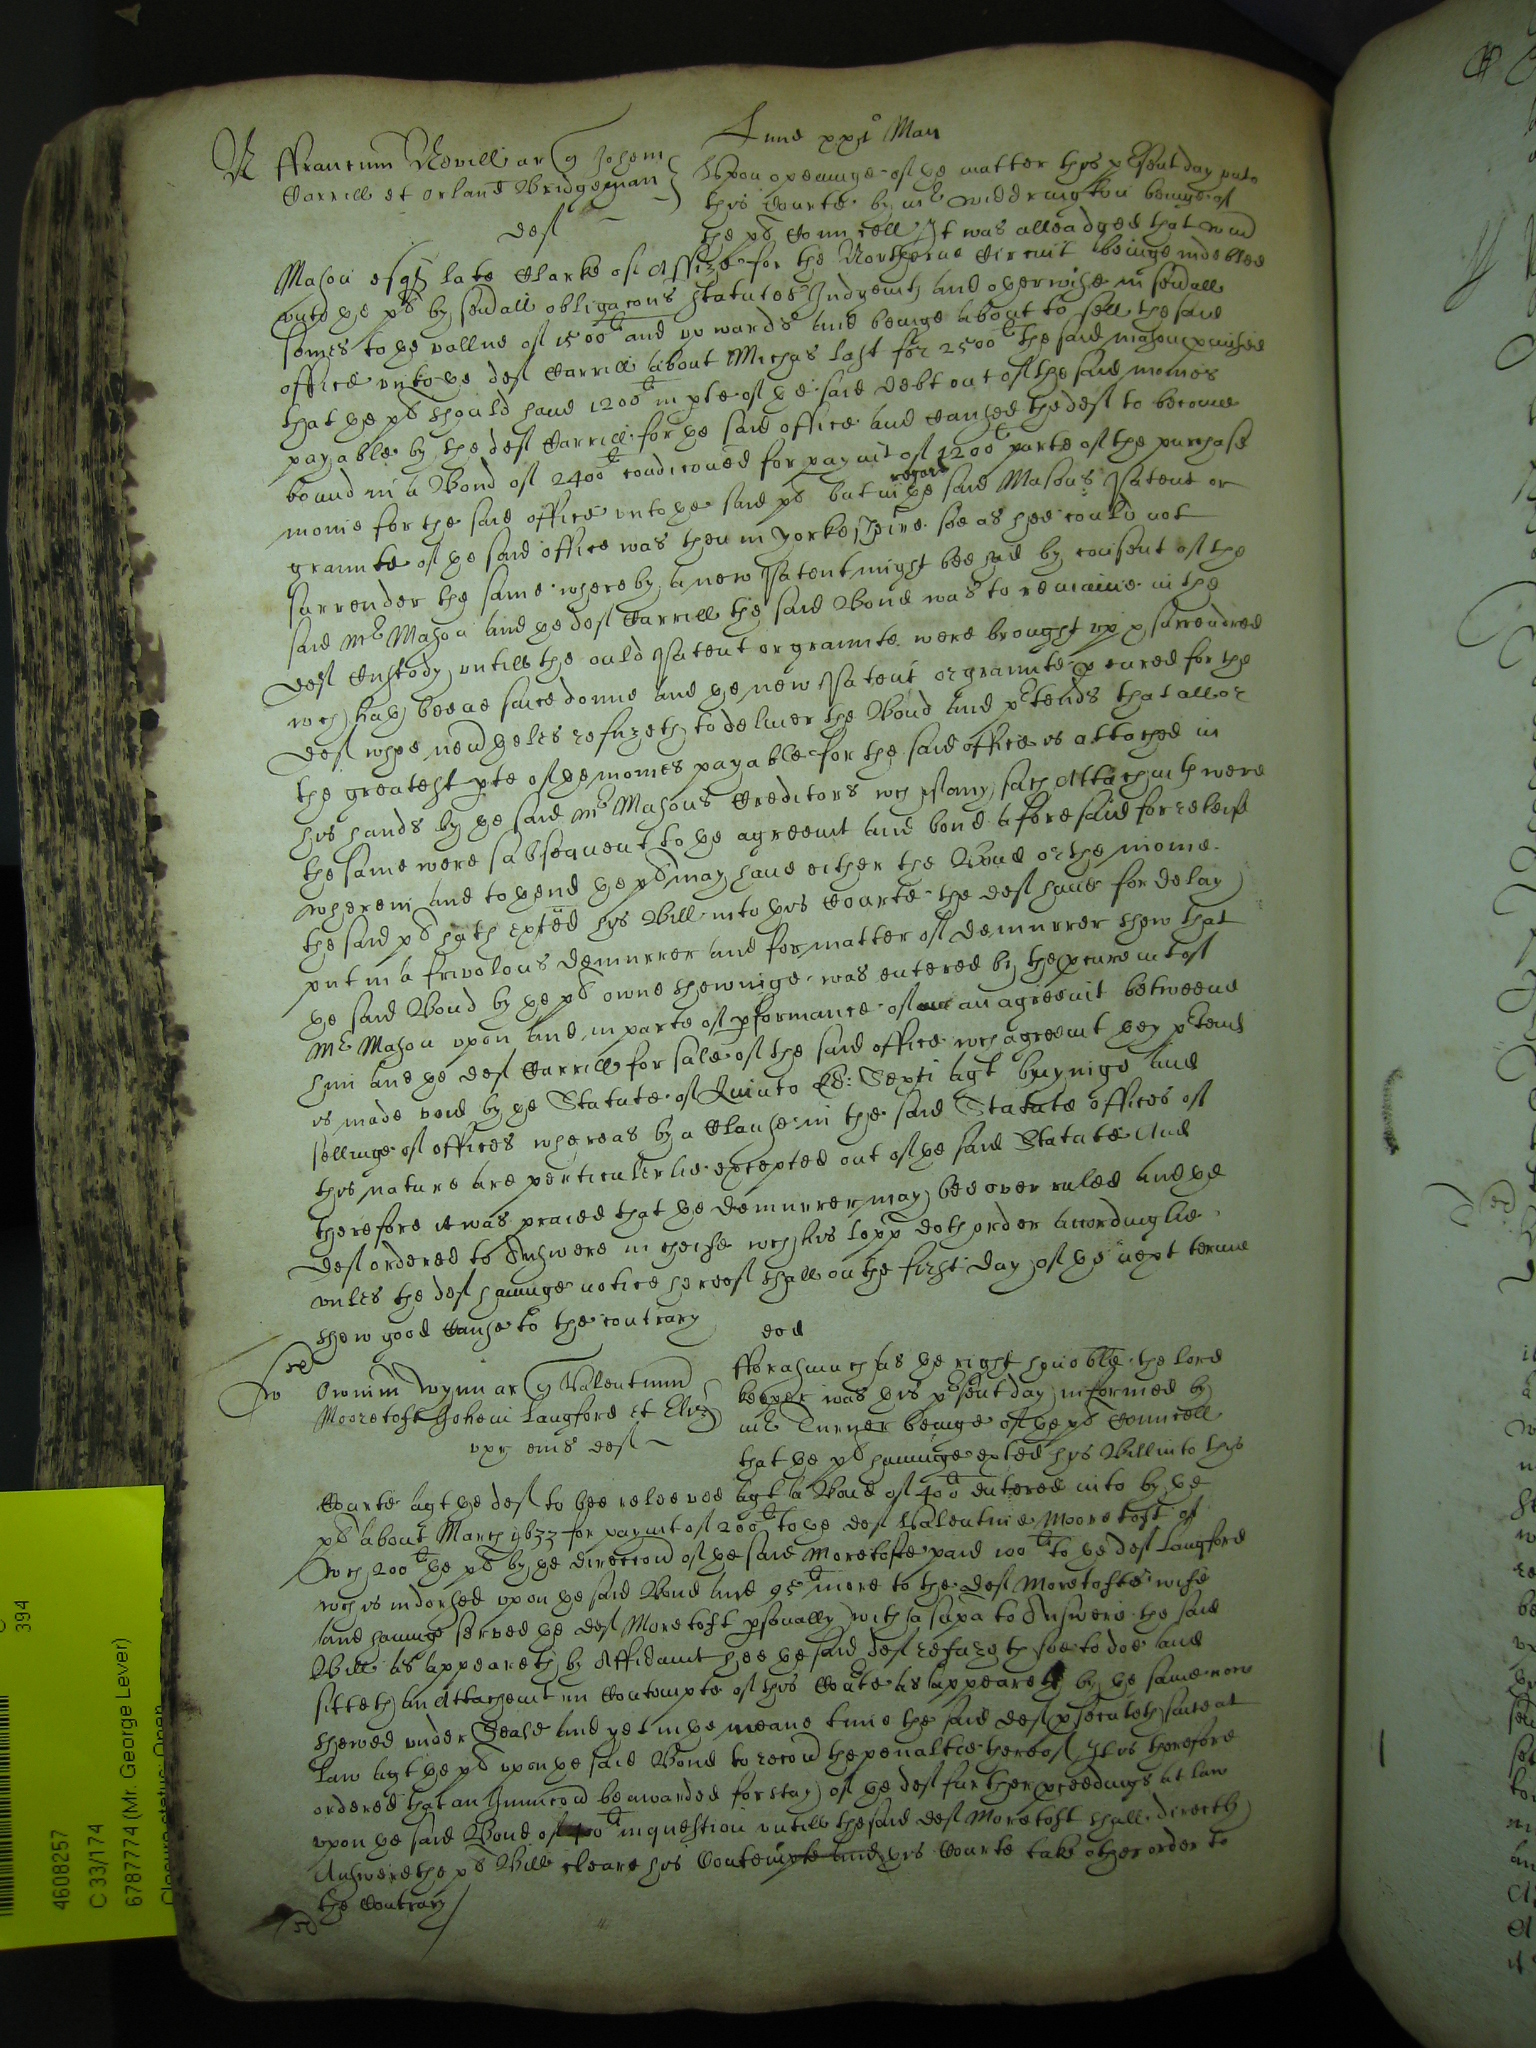 Lune xxjo Maii
N ffrancum Nevill ar q Johem
Carrill et Orland Bridgeman
def
Vpon openinge of ye matter this pnt day vnto
this Courte by mr Widdrington beinge of
the pls Councell It was alleadged that
Mason esqr late Clarke of Assize for the Northerne Circuit beinge indebted
vnto ye pl by seuall obligacons statutes Judgemts and otherwise in seuall
somes to ye vallue of 1500li and vpwards and beinge about to sell the said
office vnto ye def Carrill about Michas last for 2500li the said mason
that ye pl should haue 1200li in pte of ye said debt out of the said monies
payable by the def Carrill for ye said office and caused the def to become
bound in a Bond of 2400li condiconed for paymt of 1200li parte of the purchase
monie for the said office vnto ye said pl but in regard ye said Masons Patent or
graunte of ye said office was then in Yorkesheire soe as hee could not
surrender the same whereby a new Patent might bee had by consent of the
said mr Mason and ye def Carrill the said Bond was to remaine in the
def Custody vntill the ould Patent or graunte were brought vp & surrendred
wch hath beene since donne and ye new Patent or graunte pcured for the
def whoe nevertheles refuzeth to deliuer the Bond and ptends that all or
the greatest pte of ye monies payable for the said office is attached in
his hands by ye said mr Masons Creditors wch if any such Attachmts were
the same were subsequent to ye agreemt and bond aforesaid for releife
wherein and to thend ye pl may haue either the Bond or the monie
the said pl hath exted his Bill into this Courte the def haue for delay
put in a frivolous demurrer and for matter of demurrer shew that
ye said Bond by ye pls owne shewinge was entered by the pcuremt of
mr Mason vpon and in parte of pformance of an agreemt betweene
him and ye def Carrill for sale of the said office wch agreemt they ptend
is made void by ye Statute of Quinto Ed: Sexti agt buyinge and
sellinge of offices whereas by a Clause in the said Statute offices of
this nature are perticulerlie excepted out of ye said Statute And
therefore it was praied that ye demurrer may bee over ruled and ye
def ordered to Answere in cheife wch his lopp doth order accordinglie
vnles the def hauinge notice hereof shall on the first day of ye next terme
shew good cause to the contrary
eod
Owinn Wynn ar q Valentinum
Mooretoft Johem Langford et Eliz
vxr eius def
fforasmuch as ye right honoble the lord
keeper was this psent day informed by
mr Turner beinge of ye pls Councell
that ye pl hauinge exted his Bill into this
Courte agt ye def to bee releeved agt a Bond of 400li entered into by ye
pl about March 1633 for paymt of 200li to ye def Valentine Mooretoft of
wch 200li ye pl by ye direccon of ye said Moretofte paid 100li to ye def Langford
wch is indorsed vpon ye said Bond and 95li more to the def Moretofts wife
and hauinge served ye def Moretoft psonally with a supa to Answere the said
Bill as appeareth by Affidauit hee ye said def refuzeth soe to doe and
sitteth an Attachemt in Contempte of this Courte as appeareth by ye same now
shewed vnder Seale and yet in ye meane time the said def psecuteth suite at
law agt ye pl vpon ye said Bond to recou the penaltie thereof It is therefore
ordered that an Iniunccon be awarded for stay of ye def further pceedings at law
vpon ye said Bond of 400li in question vntill the said def Moretoft shall directly
Answere the pls Bill cleare his Contempte and this Courte take other order to
the Contrary
4608257
C 33/174
6787774 (Mr. George Lever)
Closure status: Open
394